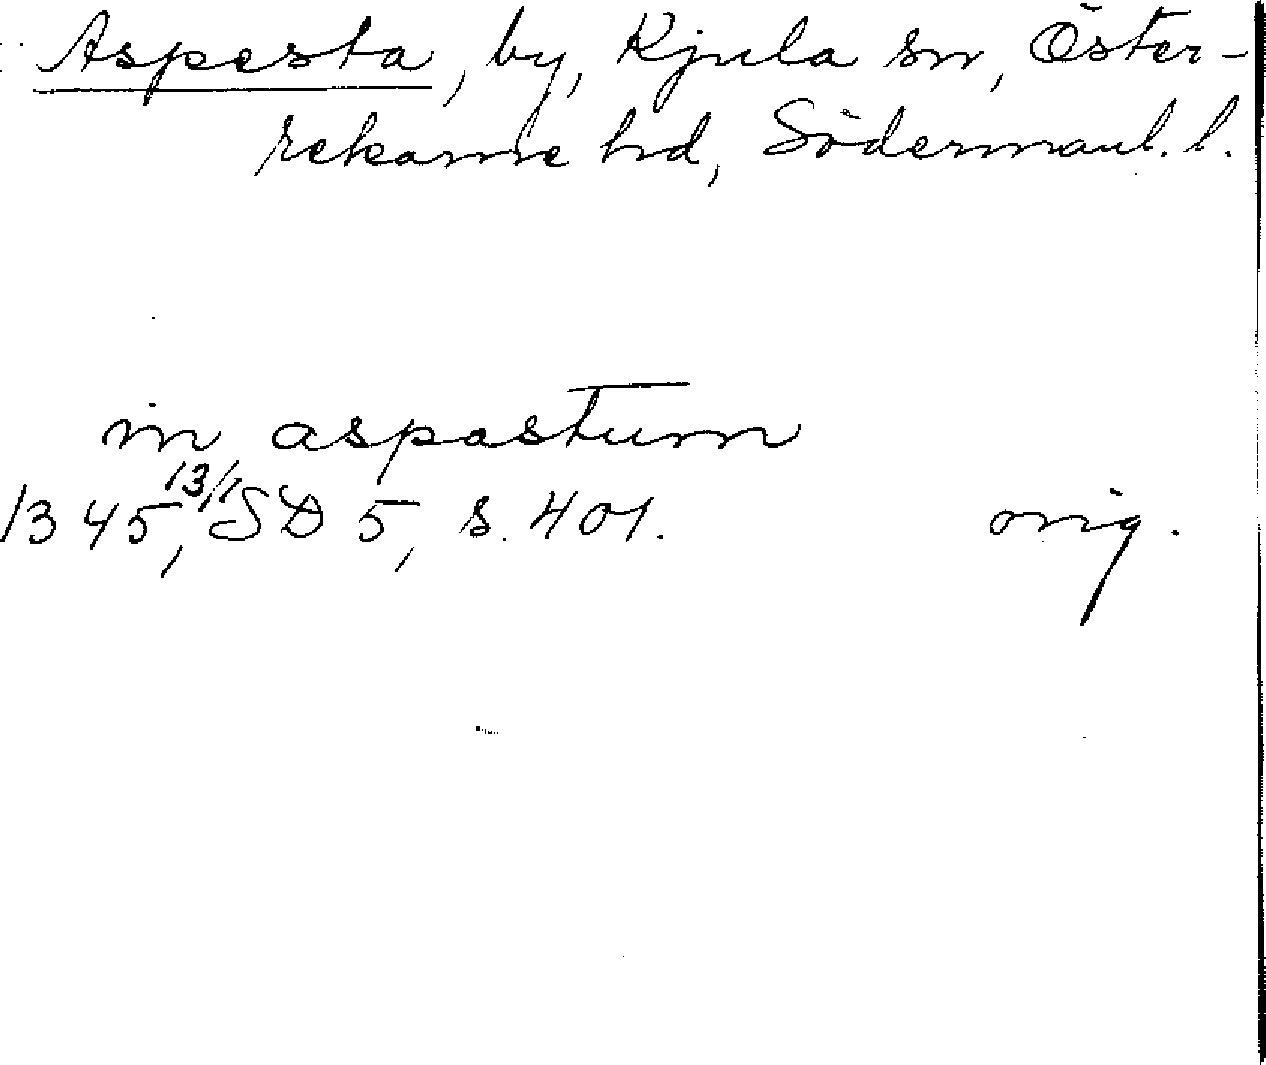 Aspesta, by, Kjula sn, Öster-
rekarne hd, Södermanl. l.
in aspastum
1345, 13/1 SD 5, s. 401. orig.